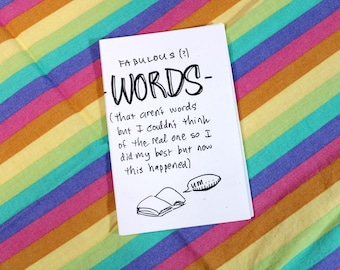 FABULOUS (?)
-WORDS-
(that aren't words
but I couldn't think
of the real one so I
did my best but now
this happened)
um